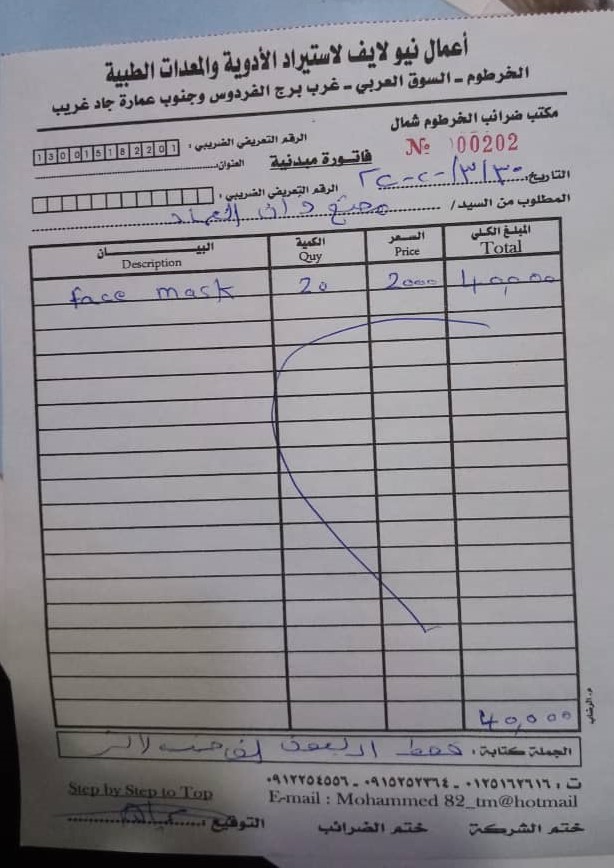 أعمال نيو لايف لاستيراد الأدوية والمعدات الطبية
الخرطوم - السوق العربي - غرب برج الفردوس وجنوب عمارة جاد غريب
مكتب ضرائب الخرطوم شمال
الرقم التعريفي الضريبي: 130015182201
№ 00202
فاتورة مبدئية
العنوان:
التاريخ: ٢٠٢٠/٣/٣٠
الرقم التعريفي الضريبي:
المطلوب من السيد/ مصنع دال
البيــــــان الكمية السعر المبلغ الكلي
Description Quy Price Total
face mask 20 2000 40,000
40,000
الجملة كتابة: فقط اربعون الف جنيه لا غير
ت: ٠١٢٥١٦٢٦١٦ - ٠٩١٥٢٥٢٣٦٤ - ٠٩١٢٢٥٤٥٥٦
Step by Step to Top
E-mail : Mohammed 82_tm@hotmail
ختم الشركة ختم الضرائب التوقيع:
م. الرضابي